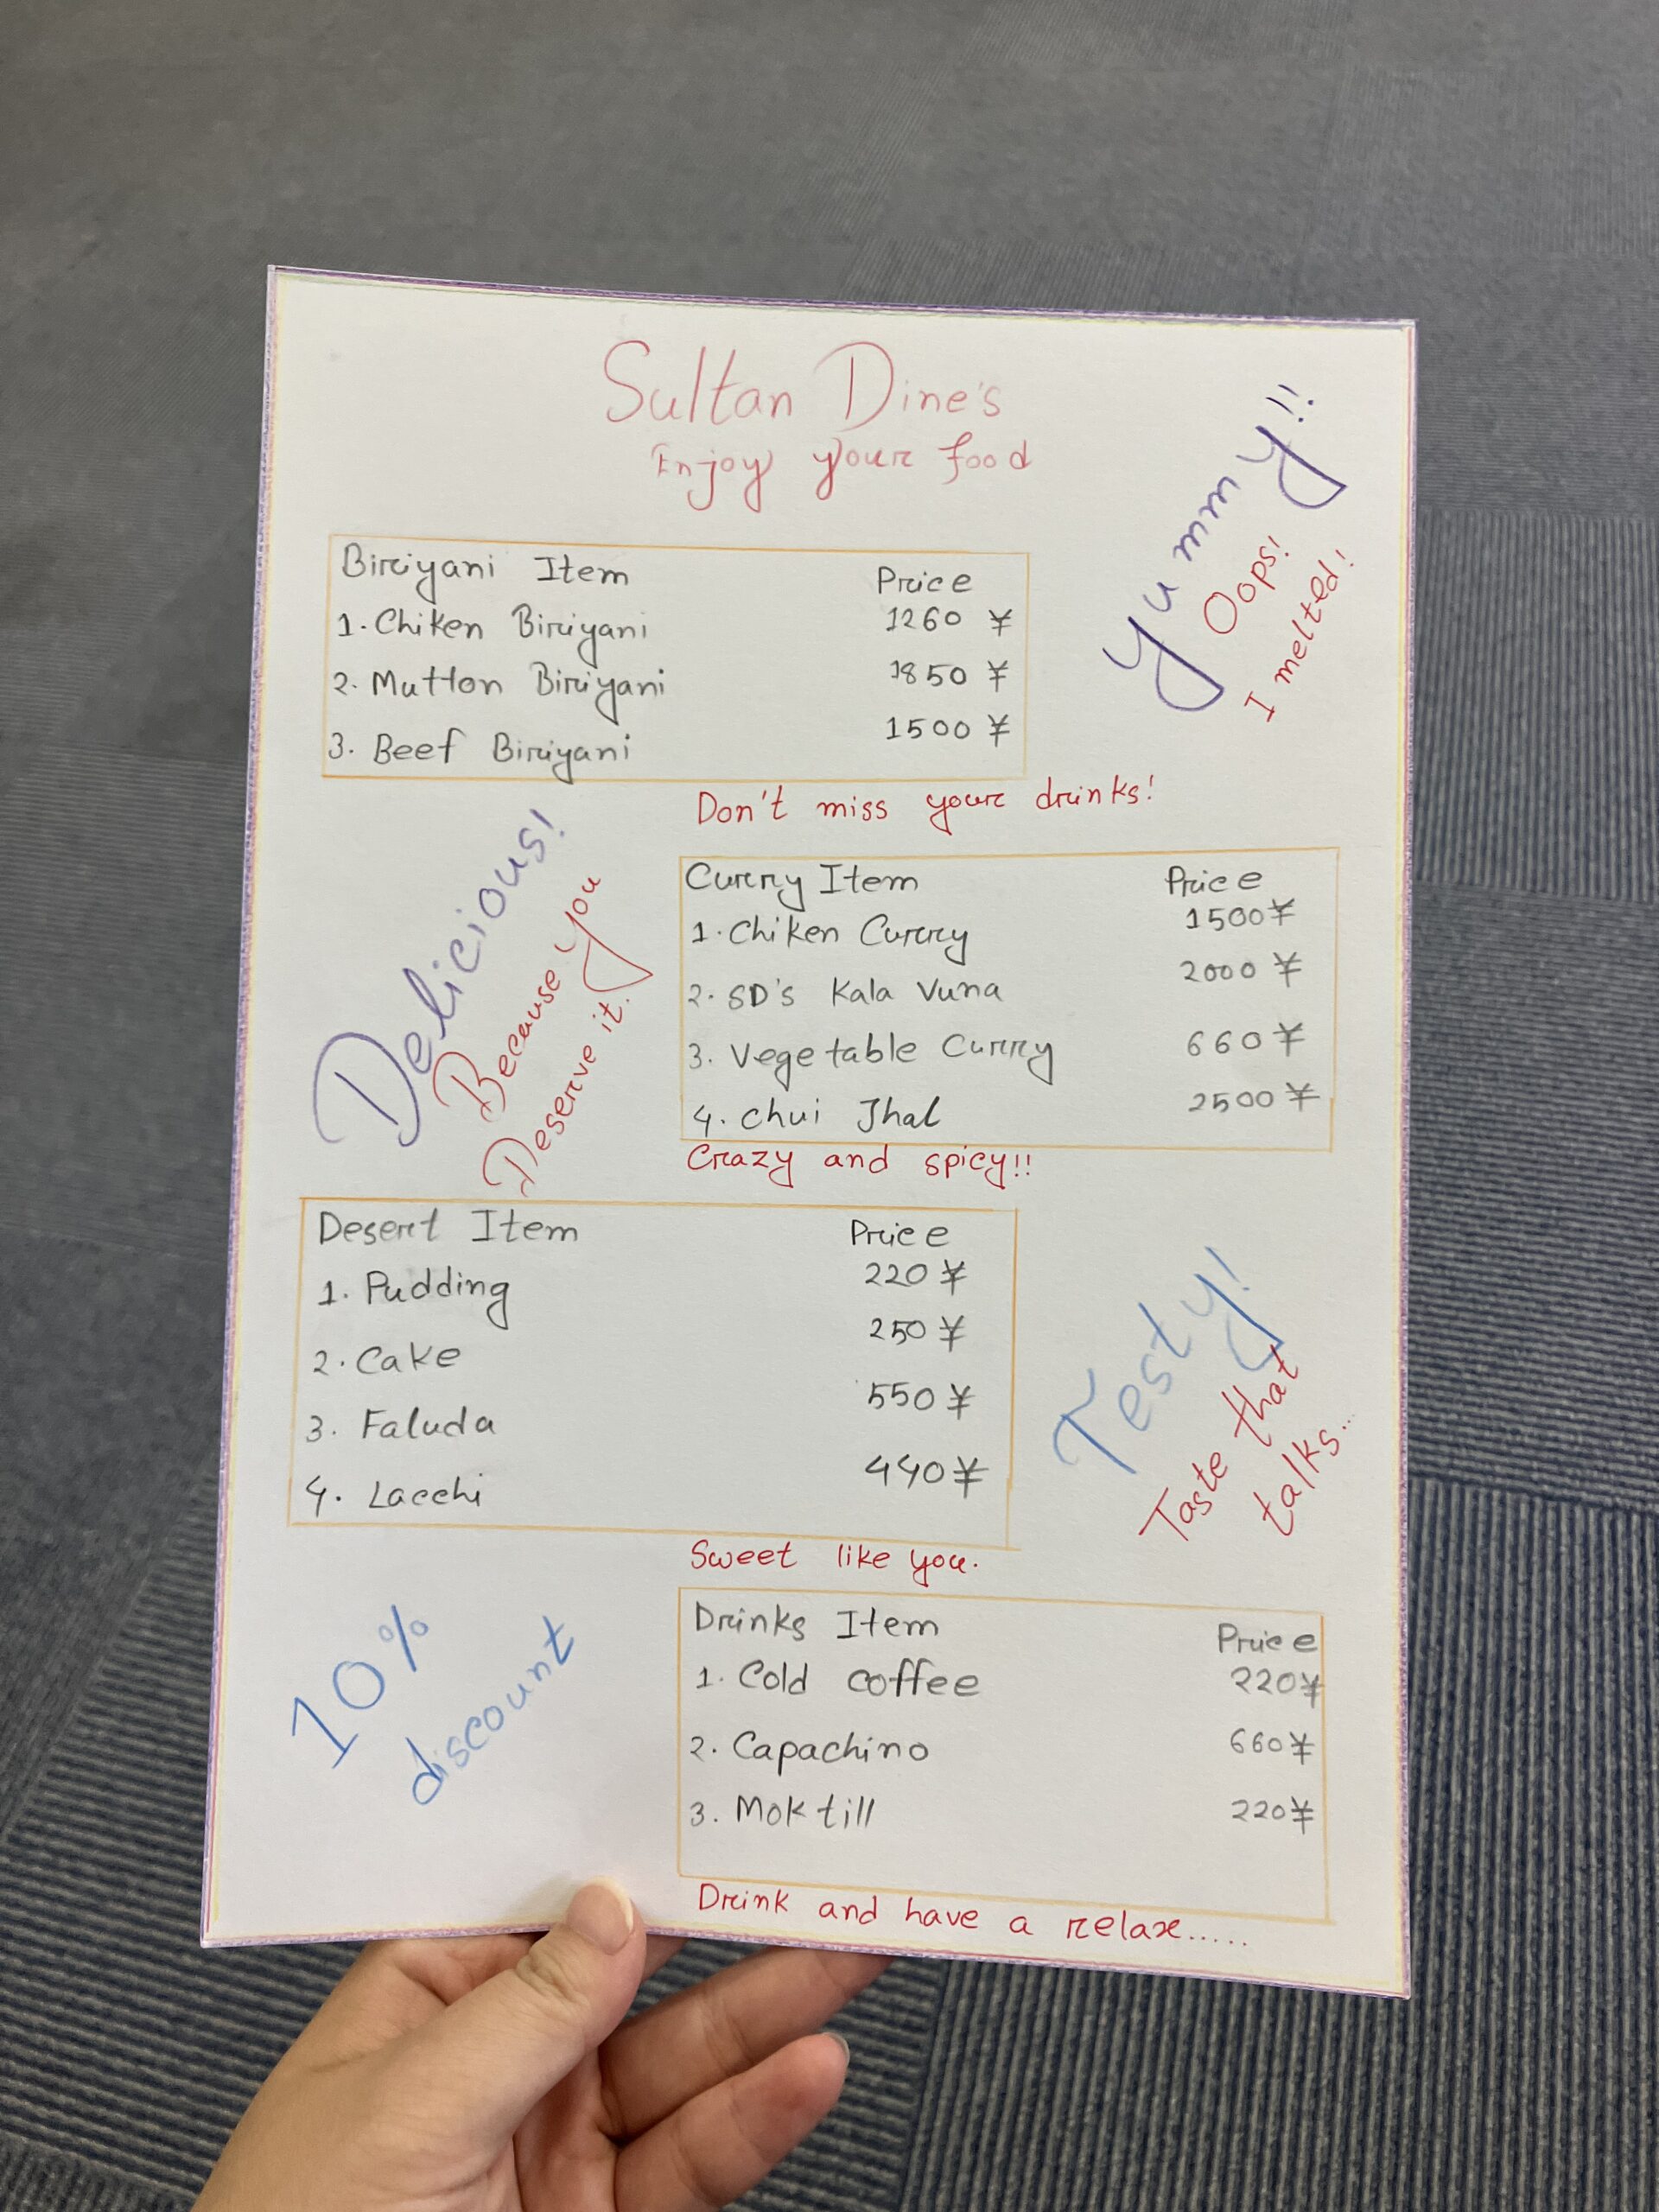 Sultan Dine's
Enjoy your food
Yummy!!
Oops!
I melted!
Biriyani Item Price
1. Chiken Biriyani 1260 ¥
2. Mutton Biriyani 1850 ¥
3. Beef Biriyani 1500 ¥
Don't miss your drinks!
Delicious!
Because You
Deserve it.
Curry Item Price
1. Chiken Curry 1500 ¥
2. SD's Kala Vuna 2000 ¥
3. Vegetable Curry 660 ¥
4. Chui Jhal 2500 ¥
Crazy and spicy!!
Desert Item Price
1. Pudding 220 ¥
2. Cake 250 ¥
3. Faluda 550 ¥
4. Lacchi 440 ¥
Testy!
Taste that
talks...
Sweet like you.
10%
discount
Drinks Item Price
1. Cold coffee 220 ¥
2. Capachino 660 ¥
3. Moktill 220 ¥
Drink and have a relax.....